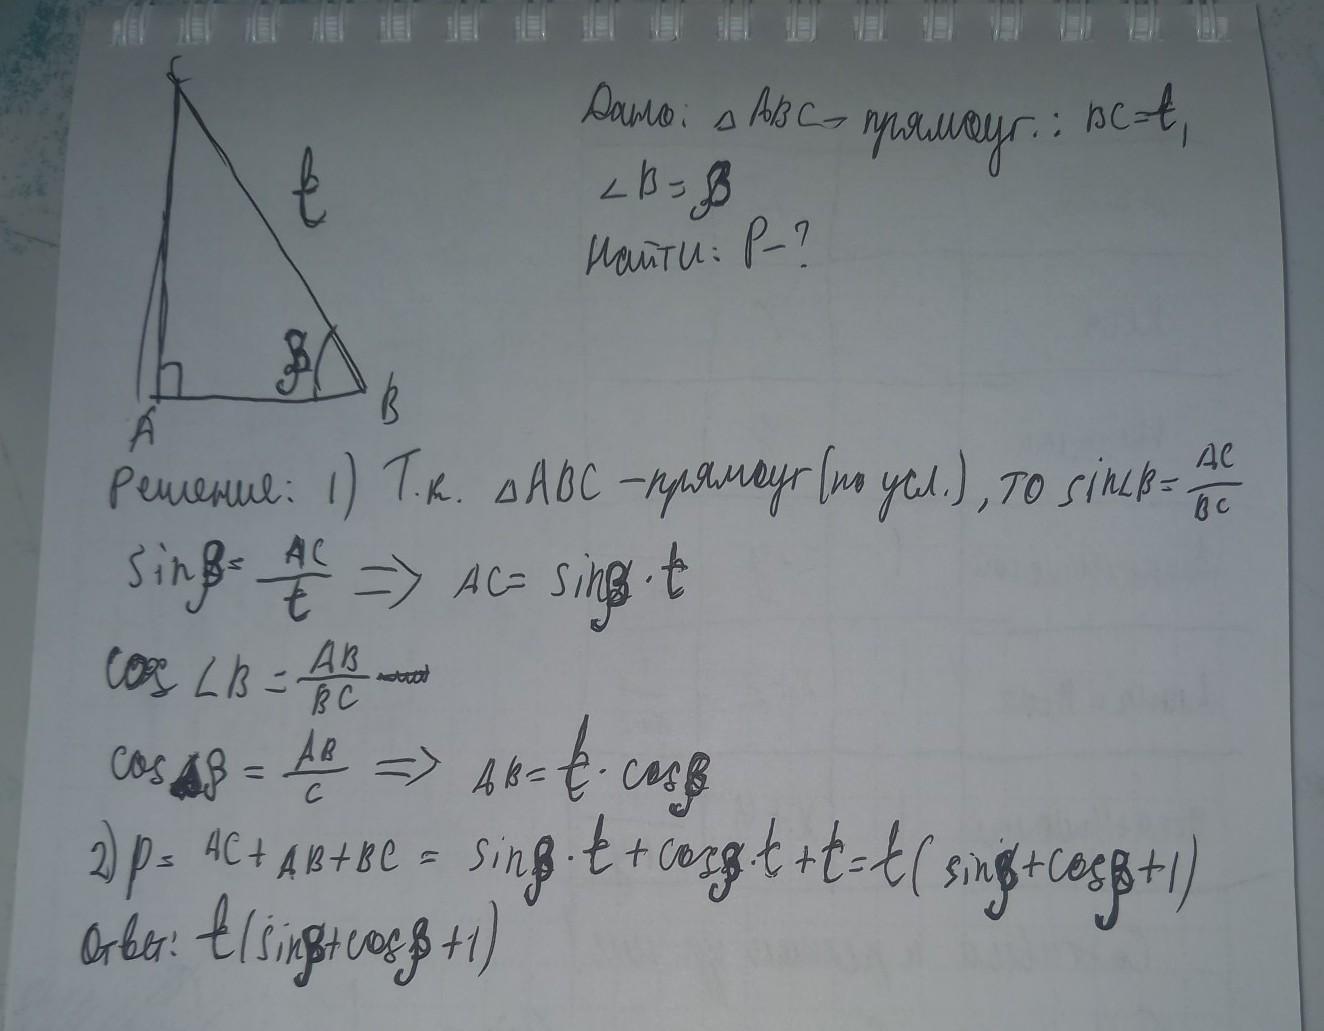 C
t
β
A
B
Дано: △ABC - прямоуг.: BC=t,
∠B=β
Найти: P-?
Решение: 1) Т.к. △ABC -прямоуг(по усл.), то sin∠B= AC/BC
sinβ= AC/t => AC= sinβ·t
cos ∠B = AB/BC
cosβ = AB/c => AB= t·cosβ
2) P= AC+AB+BC = sinβ·t+cosβ·t+t=t(sinβ+cosβ+1)
Ответ: t(sinβ+cosβ+1)